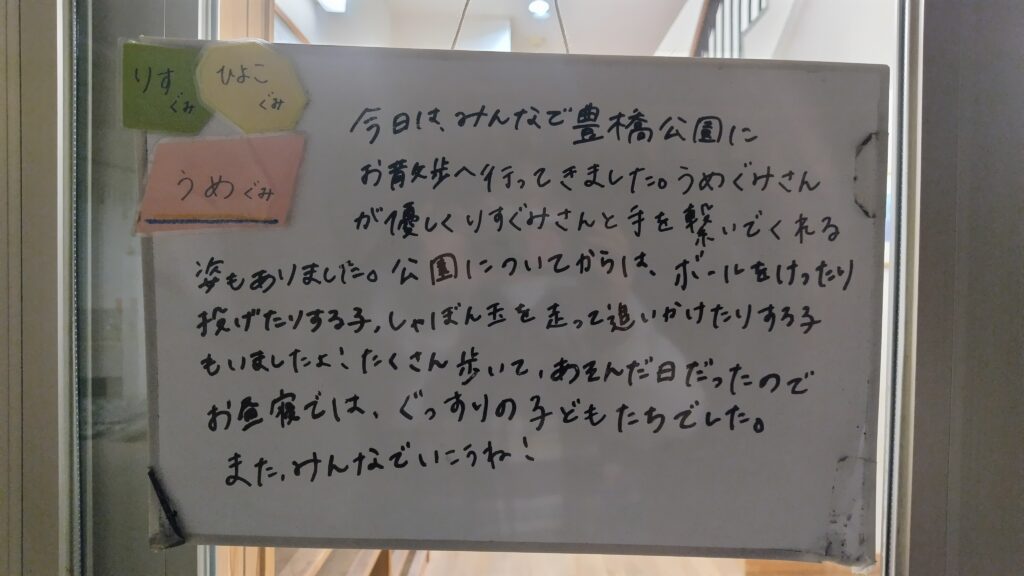 りす
ぐみ
ひよこ
ぐみ
うめぐみ
今日は、みんなで豊橋公園に
お散歩へ行ってきました。うめぐみさん
が優しくりすぐみさんと手を繋いでくれる
姿もありました。公園についてからは、ボールをけったり
投げたりする子、しゃぼん玉を走って追いかけたりする子
もいましたよ!たくさん歩いて、あそんだ日だったので
お昼寝では、ぐっすりの子どもたちでした。
また、みんなでいこうね!